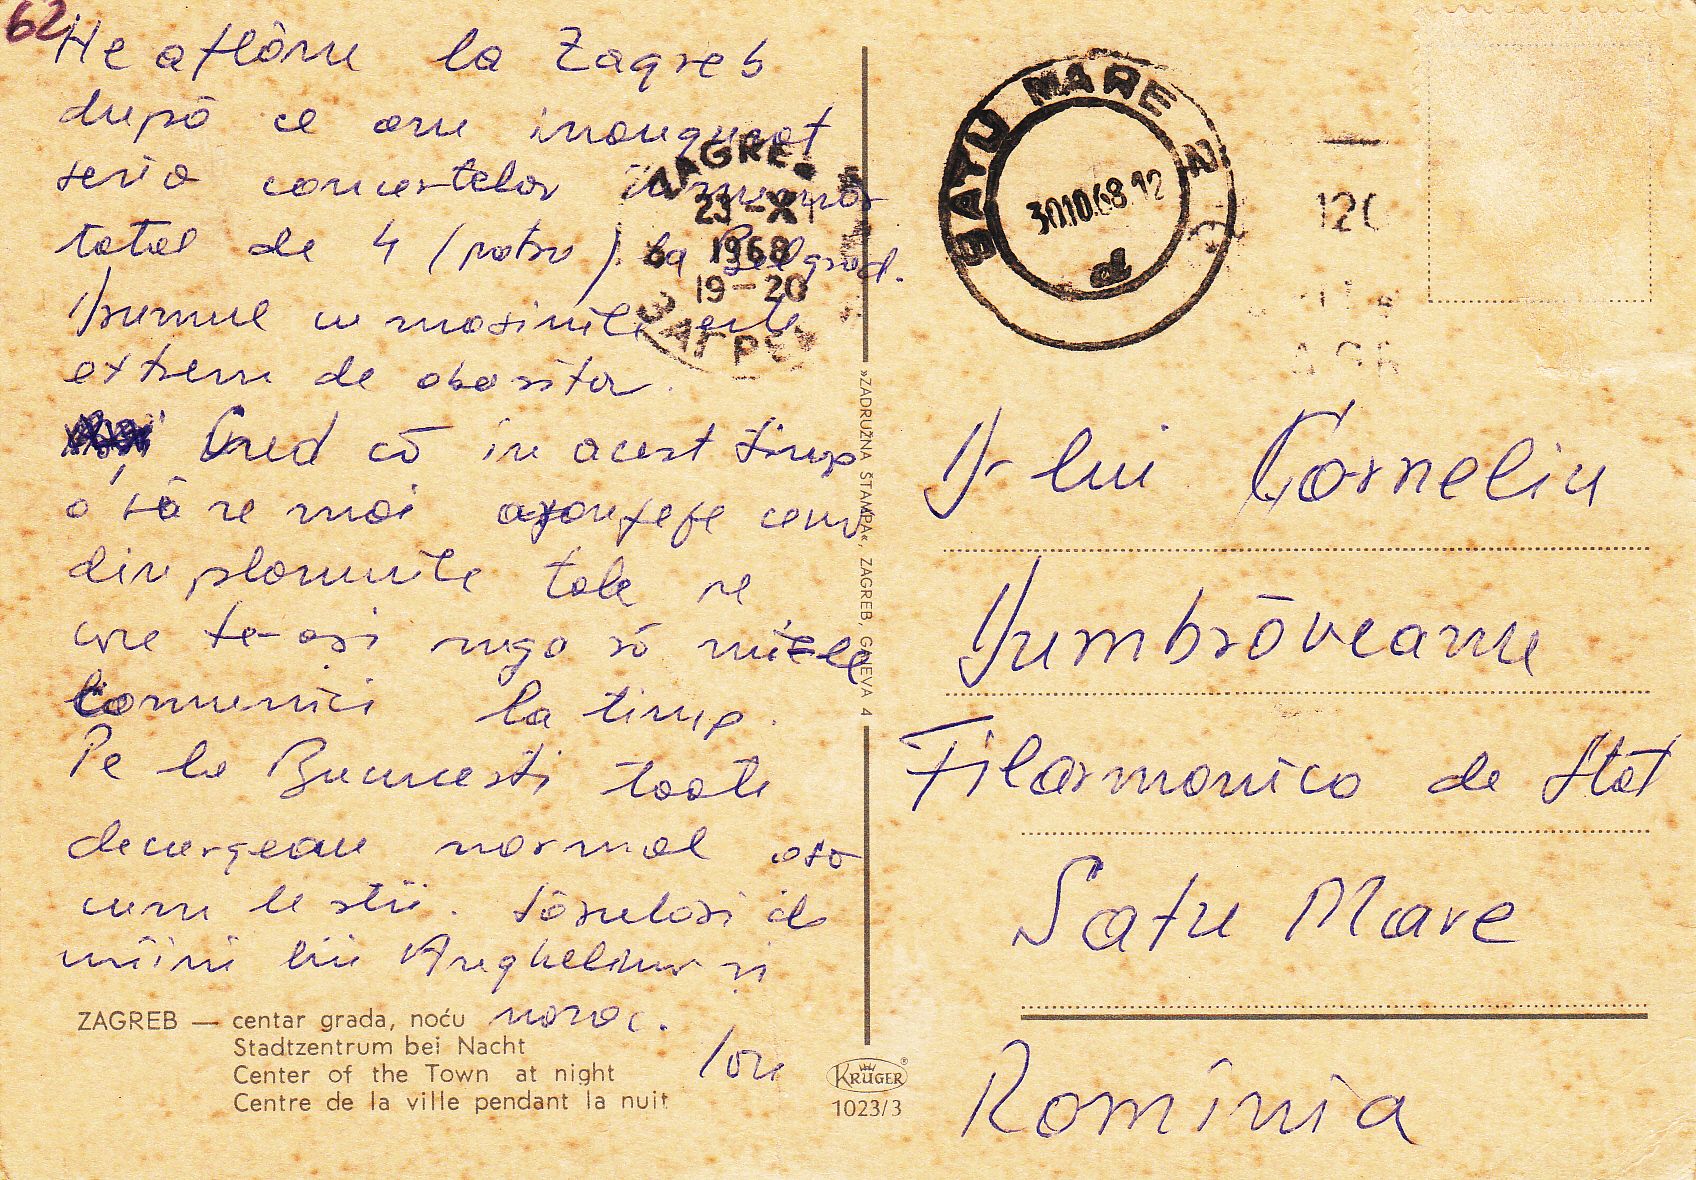 62
Ne aflăm la Zagreb
după ce am inaugurat
seria concertelor în număr
total de 4 (patru) la Belgrad.
Drumul cu mașinile este
extrem de obositor.
Cred că în acest timp
o să se mai aranjeze ceva
din planurile tale pe
care te-aș ruga să mi le
comunici la timp.
Pe la București toate
decurgeau normal așa
cum le știi. Sărulări de
mîini lui Anghelina și
noroc.
Ion
ZAGREB — centar grada, noću
Stadtzentrum bei Nacht
Center of the Town at night
Centre de la ville pendant la nuit
ZAGREB
23-X
1968
19-20
ЗАГРЕБ
»ZADRUŽNA ŠTAMPA«, ZAGREB, GAJEVA 4
KRÜGER
1023/3
SATU MARE 2
30.10.68.12
d
D-lui Corneliu
Dumbrăveanu
Filarmonica de Stat
Satu Mare
Romînia